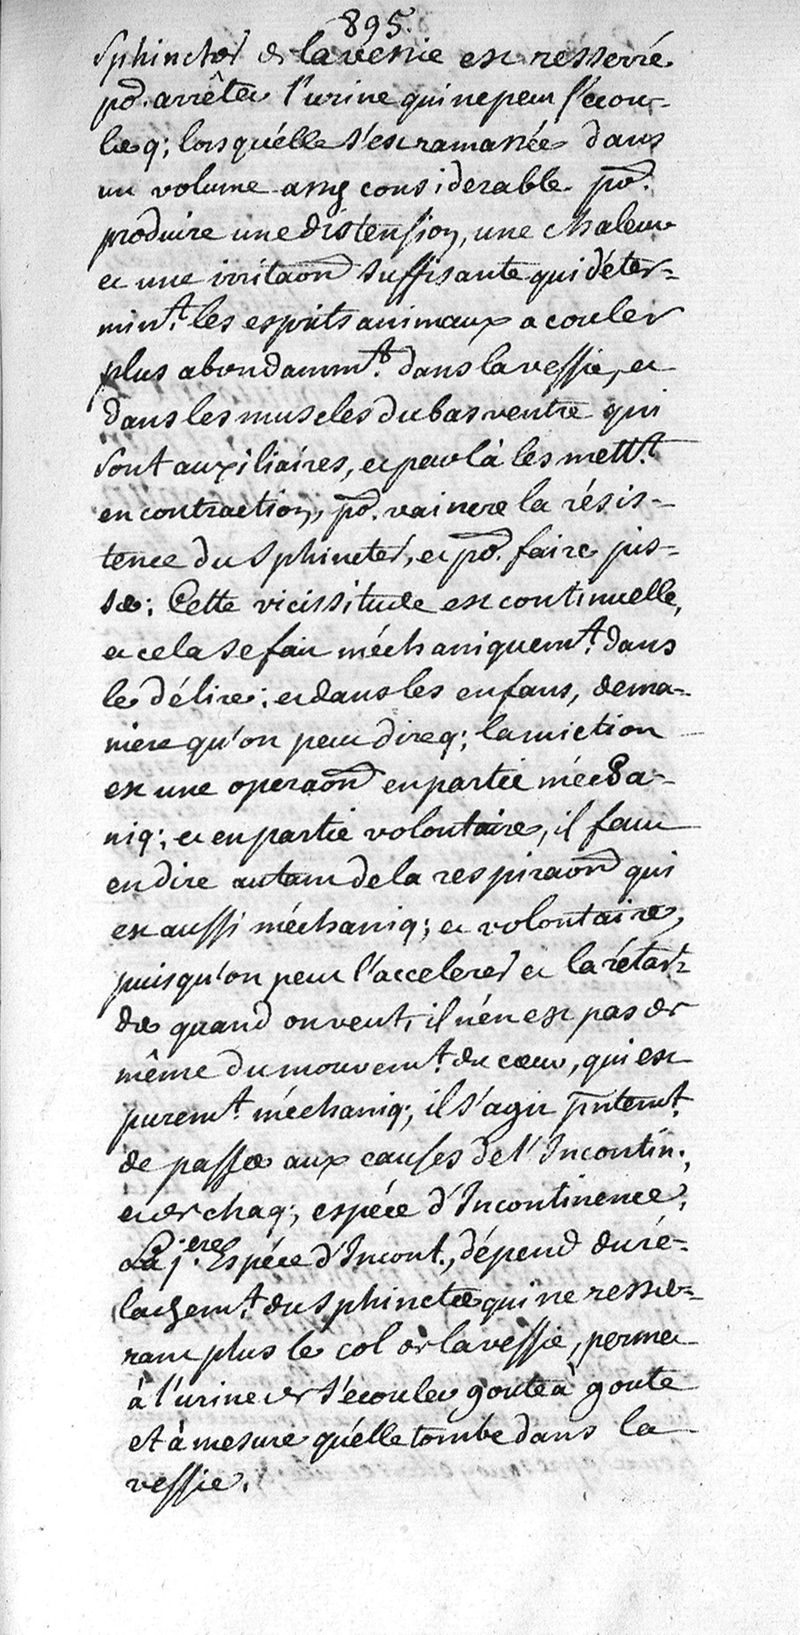 895.
Sphincter de la vessie est resserré
pr. arrêter l'urine qui ne peut s'écou-
ler q; lorsqu'élle s'est ramassée dans
un volume assés considerable pr.
produire une distension, une chaleur
et une irritaon suffisante qui déter-
mint. les esprits animaux a couler
plus abondammt. dans la vessie, et
dans les muscles du bas ventre qui
sont auxiliaires, et par là les mettt.
en contraction, pr. vaincre la résis-
tence du Sphincter, et pr. faire pis-
ser; Cette vicissitude est continuelle,
et cela se fait méchaniquemt. dans
le délire; et dans les enfans, de ma-
niere qu'on peut dire q; la miction
est une operaon en partie mécha-
niq; et en partie volontaire, il faut
en dire autant de la respiraon qui
est aussi méchaniq; et volontaire,
puisqu'on peut l'accelerer et la rétar-
der quand on veut, il n'én est pas de
même du mouvemt. du cœur, qui est
puremt. méchaniq; il s'agit pntemt.
de passer aux causes de l'Incontin.,
et de chaq; espéce d'Incontinence,
La 1.ere Espéce d'Incont., dépend du ré-
lachemt. du Sphincter qui ne resser-
rant plus le col de la vessie, permet
à l'urine de s'écouler goute à goute
et à mesure qu'élle tombe dans la
vessie.